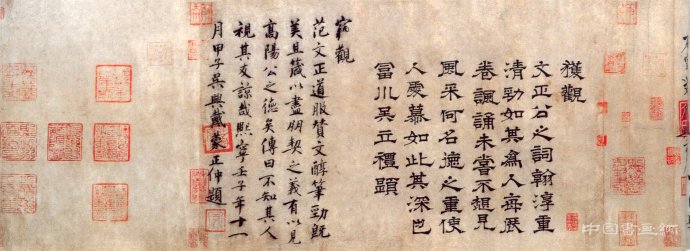 獲觀
文正公之詞翰淳重
清勁如其為人每展
卷諷誦未嘗不想見
風采何名德之重使
人愛慕如此其深也
冨川吳立禮題
竊觀
范文正道服贊文醇筆勁既
美且箴以盡朋契之義有以見
高陽公之德矣傳曰不知其人
視其友諒哉熙寧壬子年十一
月甲子吳興戴蒙正仲題